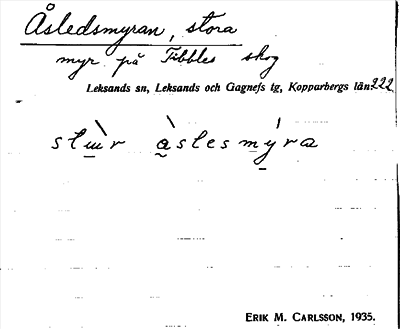 Åsledsmyran, stora
myr på Tibbles skog
Leksands sn, Leksands och Gagnefs tg, Kopparbergs län 222
stɯ̀r àslesmýra
ERIK M. CARLSSON, 1935.